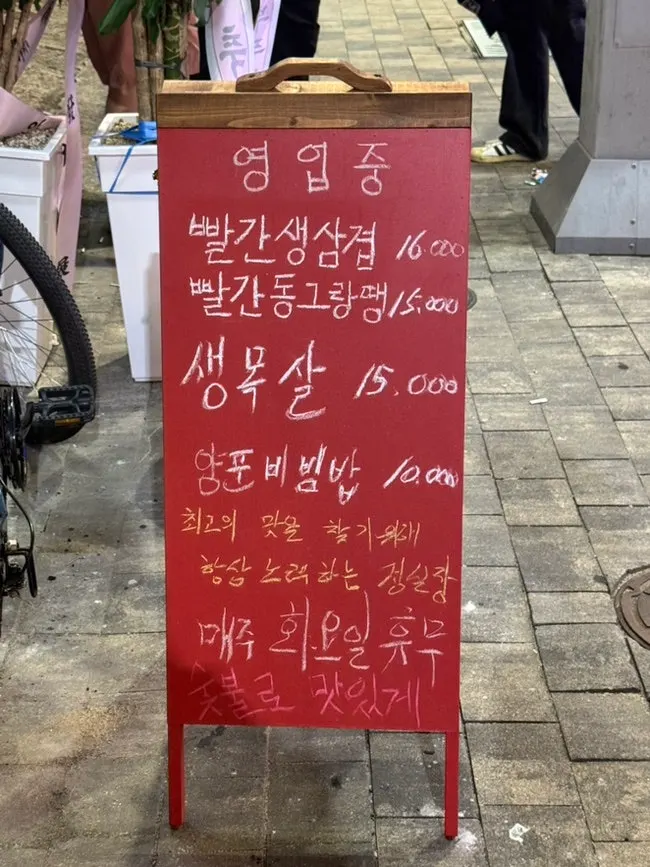 영업중
빨간생삼겹 16.000
빨간동그랑땡 15.000
생목살 15.000
양푼비빔밥 10.000
최고의 맛을 찾기위해
항상 노력하는 정실장
매주 화요일 휴무
숯불로 맛있게